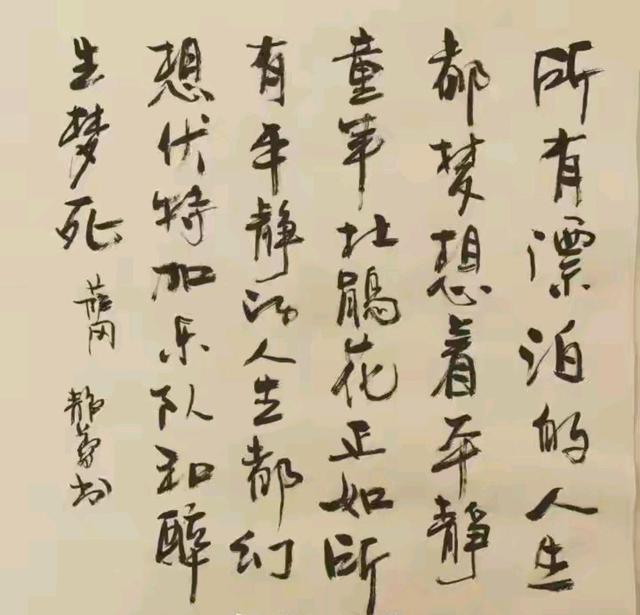 所有漂泊的人生
都梦想着平静
童年杜鹃花正如所
有平静的人生都幻
想伏特加乐队和醉
生梦死